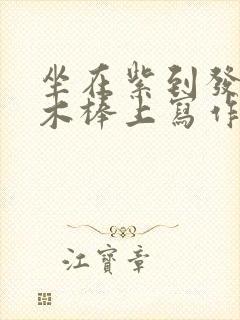 坐在紫到發
木棒上寫作
江寶章